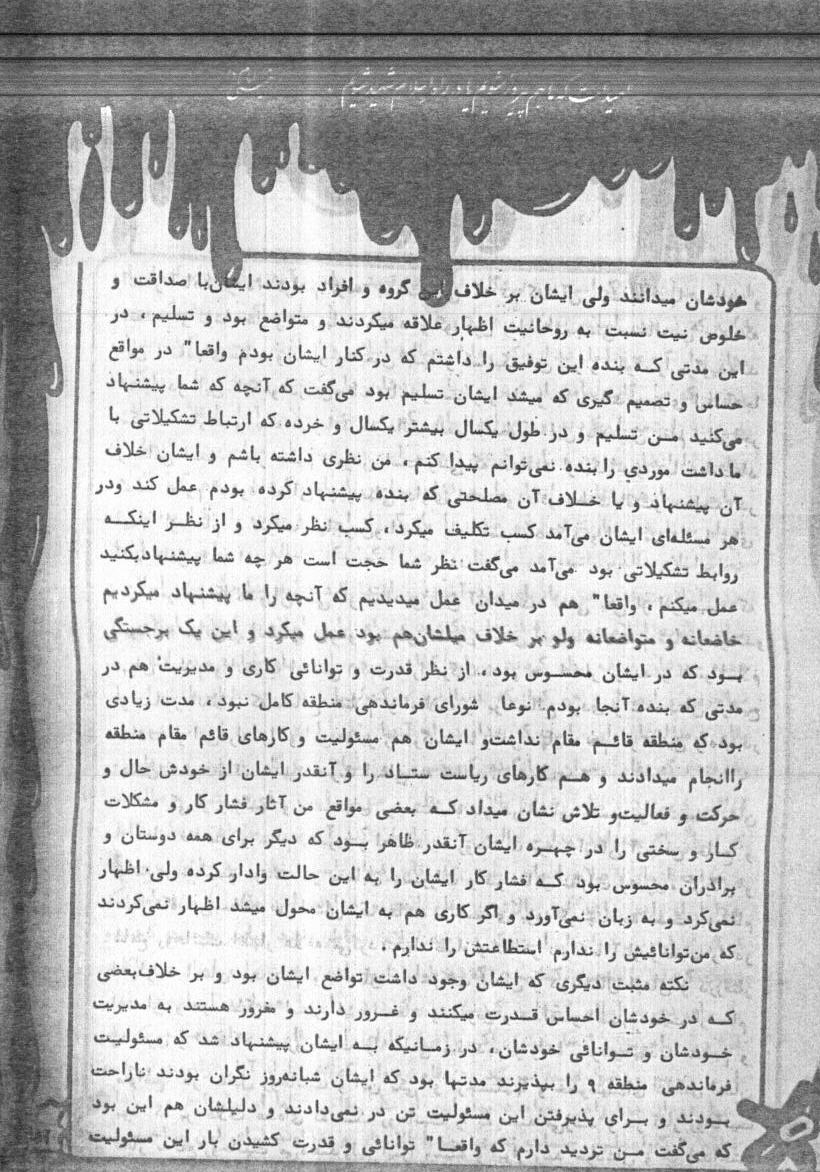 خودشان میدانند ولی ایشان بر خلاف این گروه و افراد بودند ایشان‌با صداقت و
خلوص نیت نسبت به روحانیت اظهار علاقه میکردند و متواضع بود و تسلیم ، در
این مدتی کـه بنده این توفیق را داشتم که در کنار ایشان بودم واقعا" در مواقع
حساس و تصمیم گیری که میشد ایشان تسلیم بود می‌گفت که آنچه که شما پیشنهاد
می‌کنید مـن تسلیم و در طول یکسال بیشتر یکسال و خرده که ارتباط تشکیلاتی با
ما داشت موردی را بنده نمی‌توانم پیدا کنم ، من نظری داشته باشم و ایشان خلاف
آن پیشنهاد و یا خـلاف آن مصلحتی که بنده پیشنهاد کرده بودم عمل کند ودر
هر مسئله‌ای ایشان می‌آمد کسب تکلیف میکرد ، کسب نظر میکرد و از نظـر اینکـه
روابط تشکیلاتی بود می‌آمد می‌گفت نظر شما حجت است هر چه شما پیشنهادبکنید
عمل میکنم ، واقعا" هم در میدان عمل میدیدیم که آنچه را ما پیشنهاد میکردیم
خاضعانه و متواضعانه ولو بر خلاف میلشان‌هم بود عمل میکرد و این یک برجستگی
بـود که در ایشان محسـوس بود ، از نظر قدرت و توانائی کاری و مدیریت هم در
مدتی که بنده آنجا بودم نوعا شورای فرماندهی منطقه کامل نبود ، مدت زیادی
بود که منطقه قائـم مقام نداشت‌و ایشان هم مسئولیت و کارهای قائم مقام منطقه
راانجام میدادند و هـم کارهای ریاست ستـاد را و آنقدر ایشان از خودش حال و
حرکت و فعالیت‌و تلاش نشان میداد کـه بعضی مواقع من آثار فشار کار و مشکلات
کـار و سختی را در چهـره ایشان آنقدر ظاهر بـود که دیگر برای همه دوستان و
برادران محسوس بود کـه فشار کار ایشان را به این حالت وادار کرده ولی اظهار
نمی‌کرد و به زبان نمی‌آورد و اگر کاری هم به ایشان محول میشد اظهار نمی‌کردند
که من‌توانائیش را ندارم استطاعتش را ندارم .
نکته مثبت دیگری که ایشان وجود داشت تواضع ایشان بود و بر خلاف‌بعضی
کـه در خودشان احساس قـدرت میکنند و غـرور دارند و مغرور هستند به مدیریت
خـودشان و تـوانائی خودشان ، در زمـانیکه بـه ایشان پیشنهاد شد که مسئولیت
فرماندهی منطقه ۹ را بپذیرند مدتها بود که ایشان شبانه‌روز نگران بودند ناراحت
بـودند و بـرای پذیرفتن این مسئولیت تن در نمی‌دادند و دلیلشان هم این بود
که می‌گفت مـن تردید دارم که واقعـا" توانائی و قدرت کشیدن بار این مسئولیت